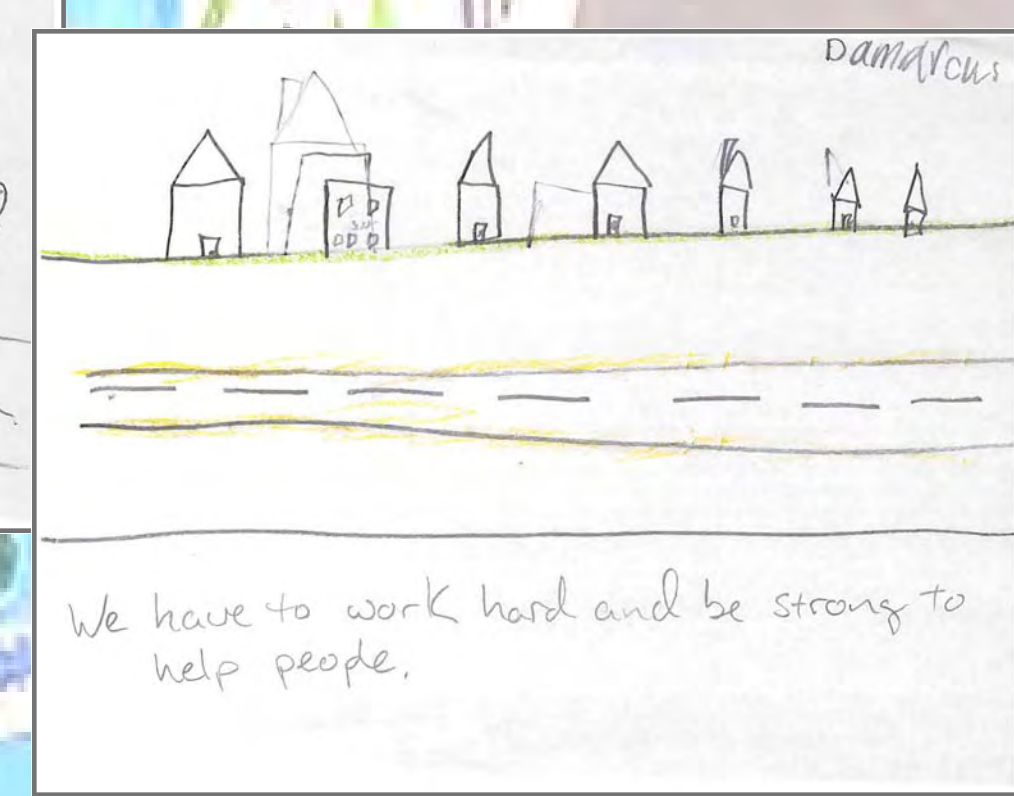 Damarcus
We have to work hard and be strong to
help people.